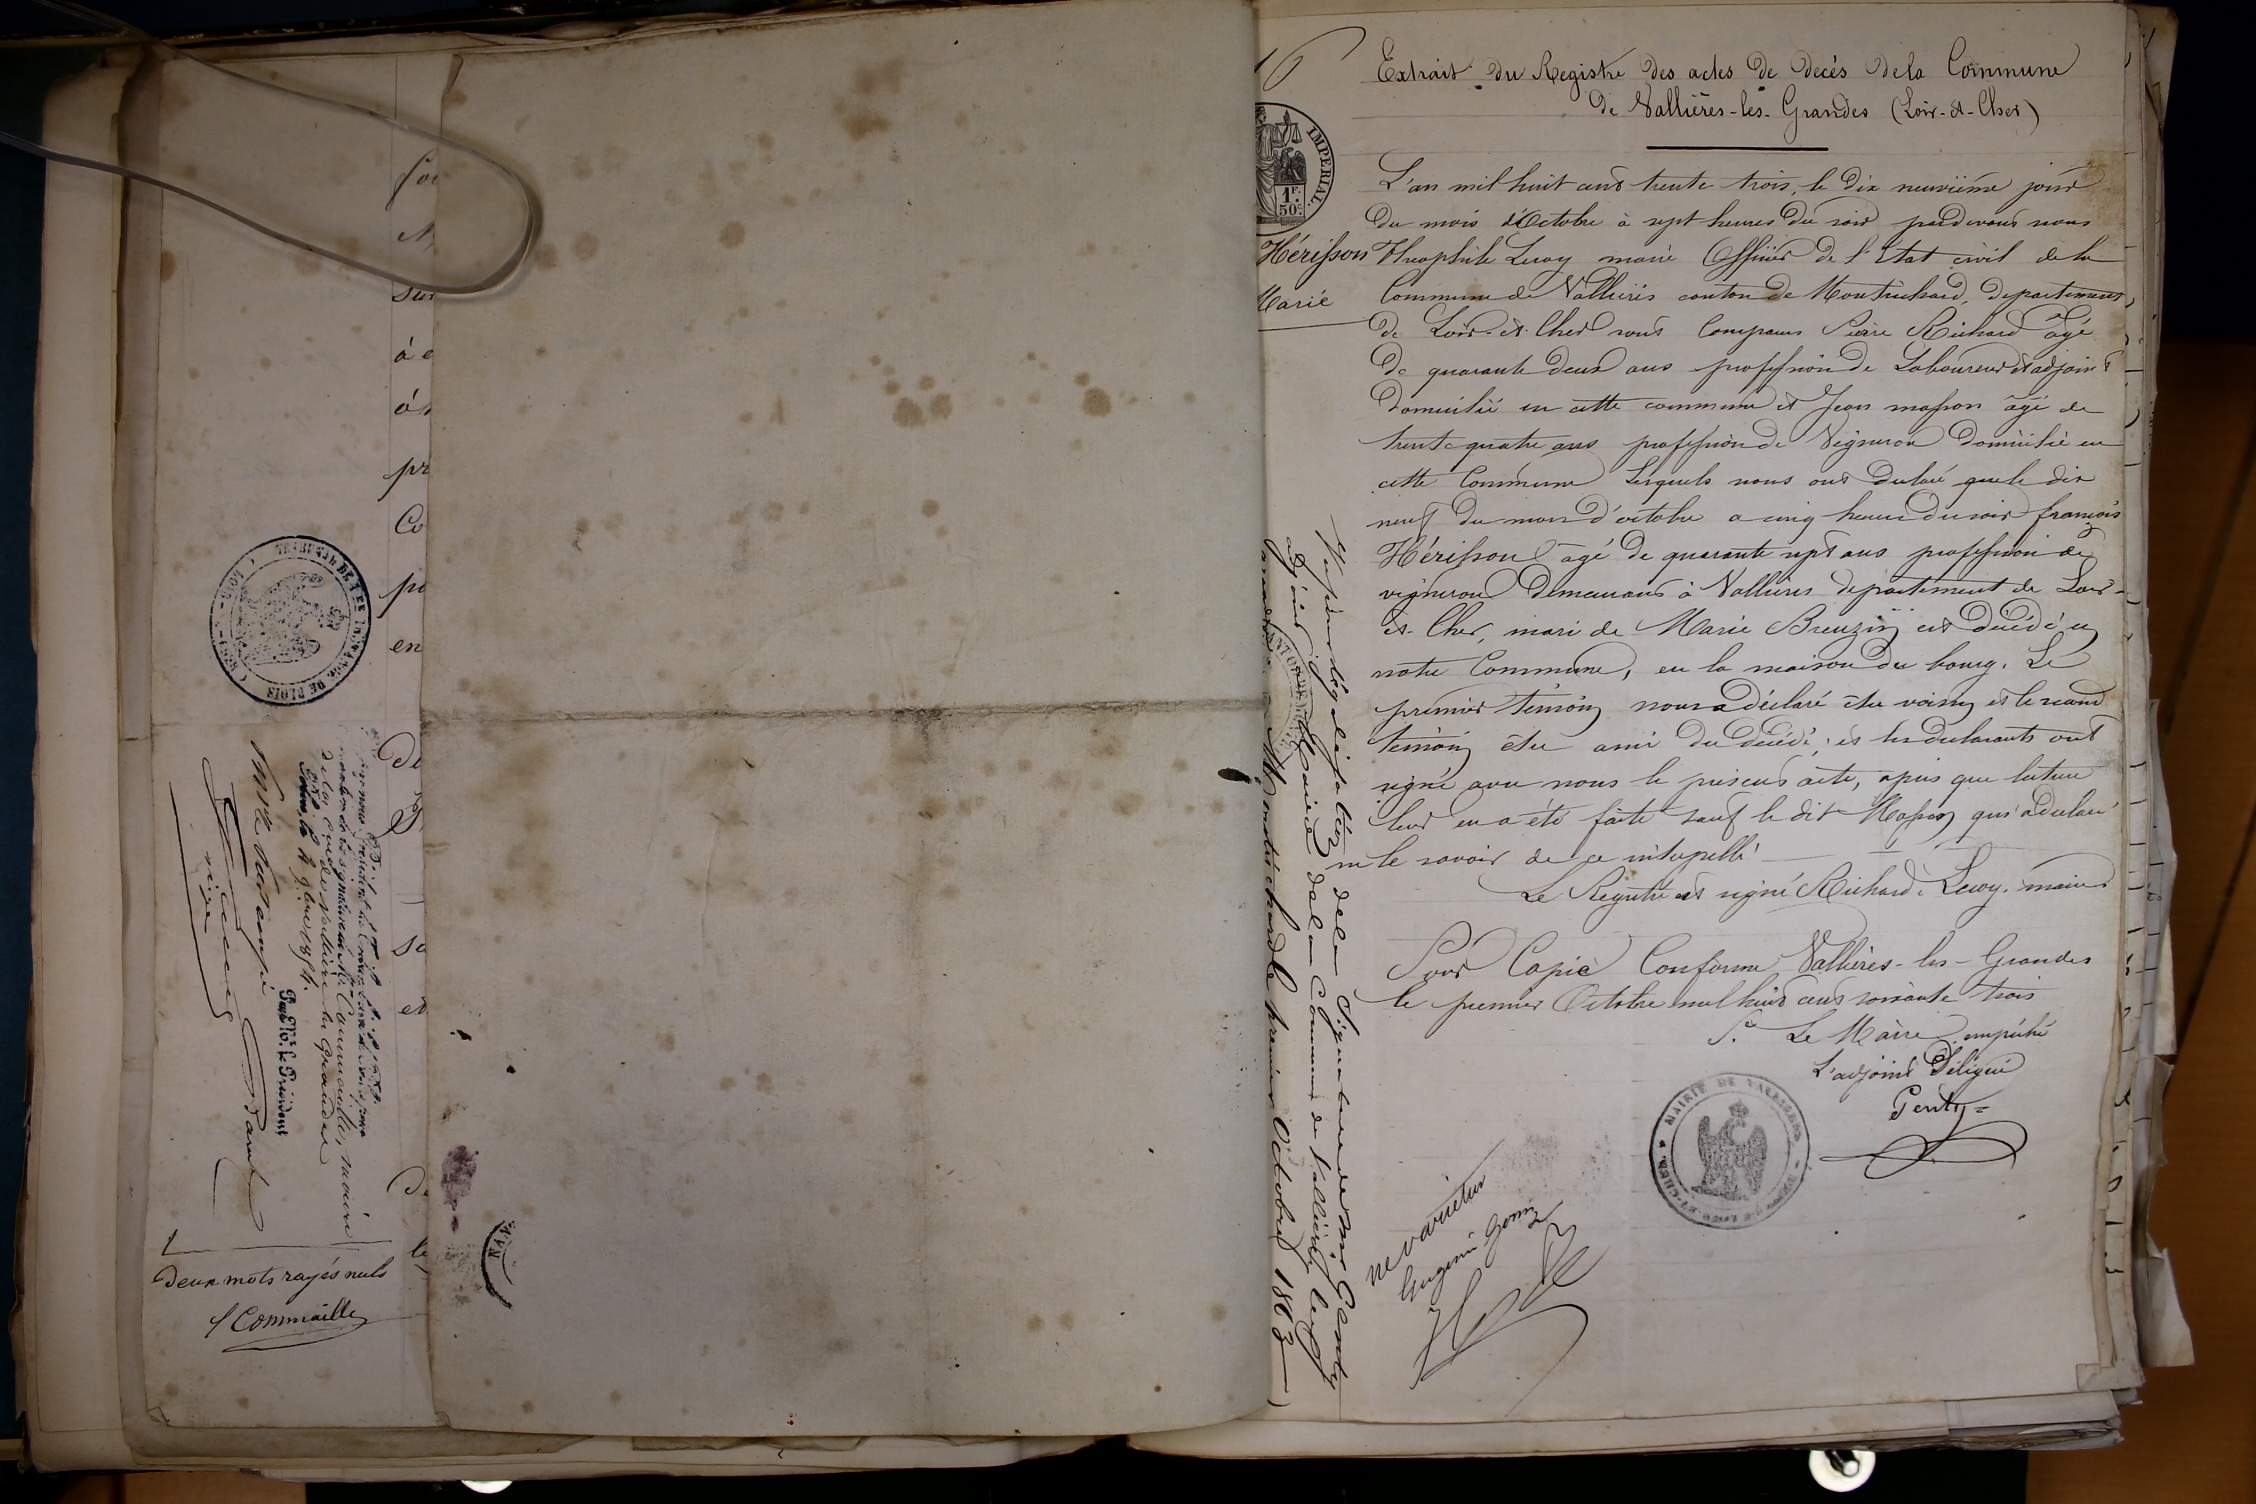 Extrait du Registre des actes de decès dela Commune
de Vallières-les-Grandes (Loir-et-Cher)
IMPERIAL.
1F.
50c.
Hérisson
Marié
L'an mil huit cent trente trois, le dix neuvième jour
du mois d'Octobre à sept heures du soir pardevant nous
Théophile Leroy maire Officier de l'Etat civil de la
Commune de Vallières canton de Montrichard, département
de Loir-et-Cher sont comparus Pierre Richard âgé
de quarante deux ans profession de Laboureur et adjoint
domicilié en cette commune et Jean masson âgé de
trente quatre ans profession de Vigneron domicilié en
cette Commune Lesquels nous ont déclaré que le dix
neuf du mois d'octobre a cinq heures du soir françois
Hérisson âgé de quarante sept ans profession de
vigneron demeurant à Vallières département de Loir-
et-Cher, mari de Marie Breuzin est décédé en
notre Commune, en la maison du bourg. Le
premier témoin nous a déclaré être voisin et le second
témoin être ami du décédé; et les déclarants ont
signé avec nous le présent acte, après que lecture
leur en a été faite sauf le dit Masson qui a déclaré
ne le savoir de ce interpellé
Le Registre est signé Richard, Leroy, maire
Pour Copie Conforme Vallières-les-Grandes
le premier Octobre mil huit cent soixante trois
Pr. Le Maire empêché
L'adjoint Délégué
Genty
MAIRIE DE VALLIERES
LOIR-ET-CHER
ne varietur
de la Signature de Mr Genty
adjoint Mairie de la Commune de Vallières les
à Montrichard le premier Octobre 1863
TRIBUNAL DE 1ERE INSTANCE DE BLOIS
Commaille, maire
de la Cne de Vallières les Grandes
le Président
deux mots rayés nuls
Commaille